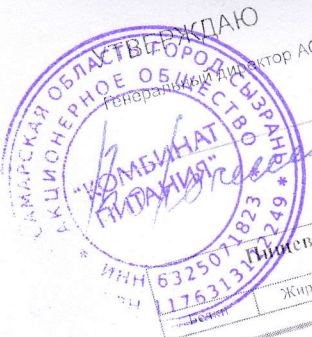 УТВЕРЖДАЮ
Генеральный директор АО
САМАРСКАЯ ОБЛАСТЬ ГОРОД СЫЗРАНЬ
АКЦИОНЕРНОЕ ОБЩЕСТВО
"КОМБИНАТ
ПИТАНИЯ"
* ИНН 6325071823 *
Пищев
Белки
Жир